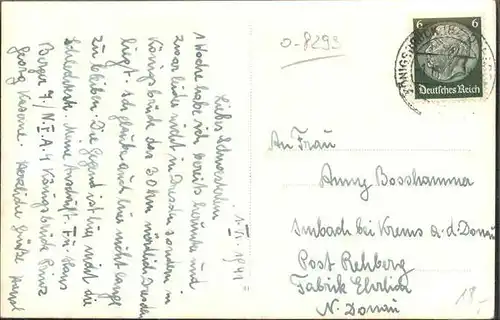 1.VI.1941
Liebes Schwesterlein!
1 Woche habe ich bereits herunten und
zwar leider nicht in Dresden sondern in
Königsbrück das 30 km nördlich Dresden
liegt. Ich glaube auch hier nicht lange
zu bleiben. Die Gegend ist hier nicht die
schlechteste. Meine Anschrift: Hans
Berger 4./N.E.A.4 Königsbrück Prinz
Georg Kaserne. Herzliche Grüße
0-8293
KÖNIGSBRÜCK
6 6
Deutsches Reich
An Frau
Anny Bosshammer
Imbach bei Krems a.d. Donau
Post Rehberg
Fabrik Ehrlich
N. Donau
18,-